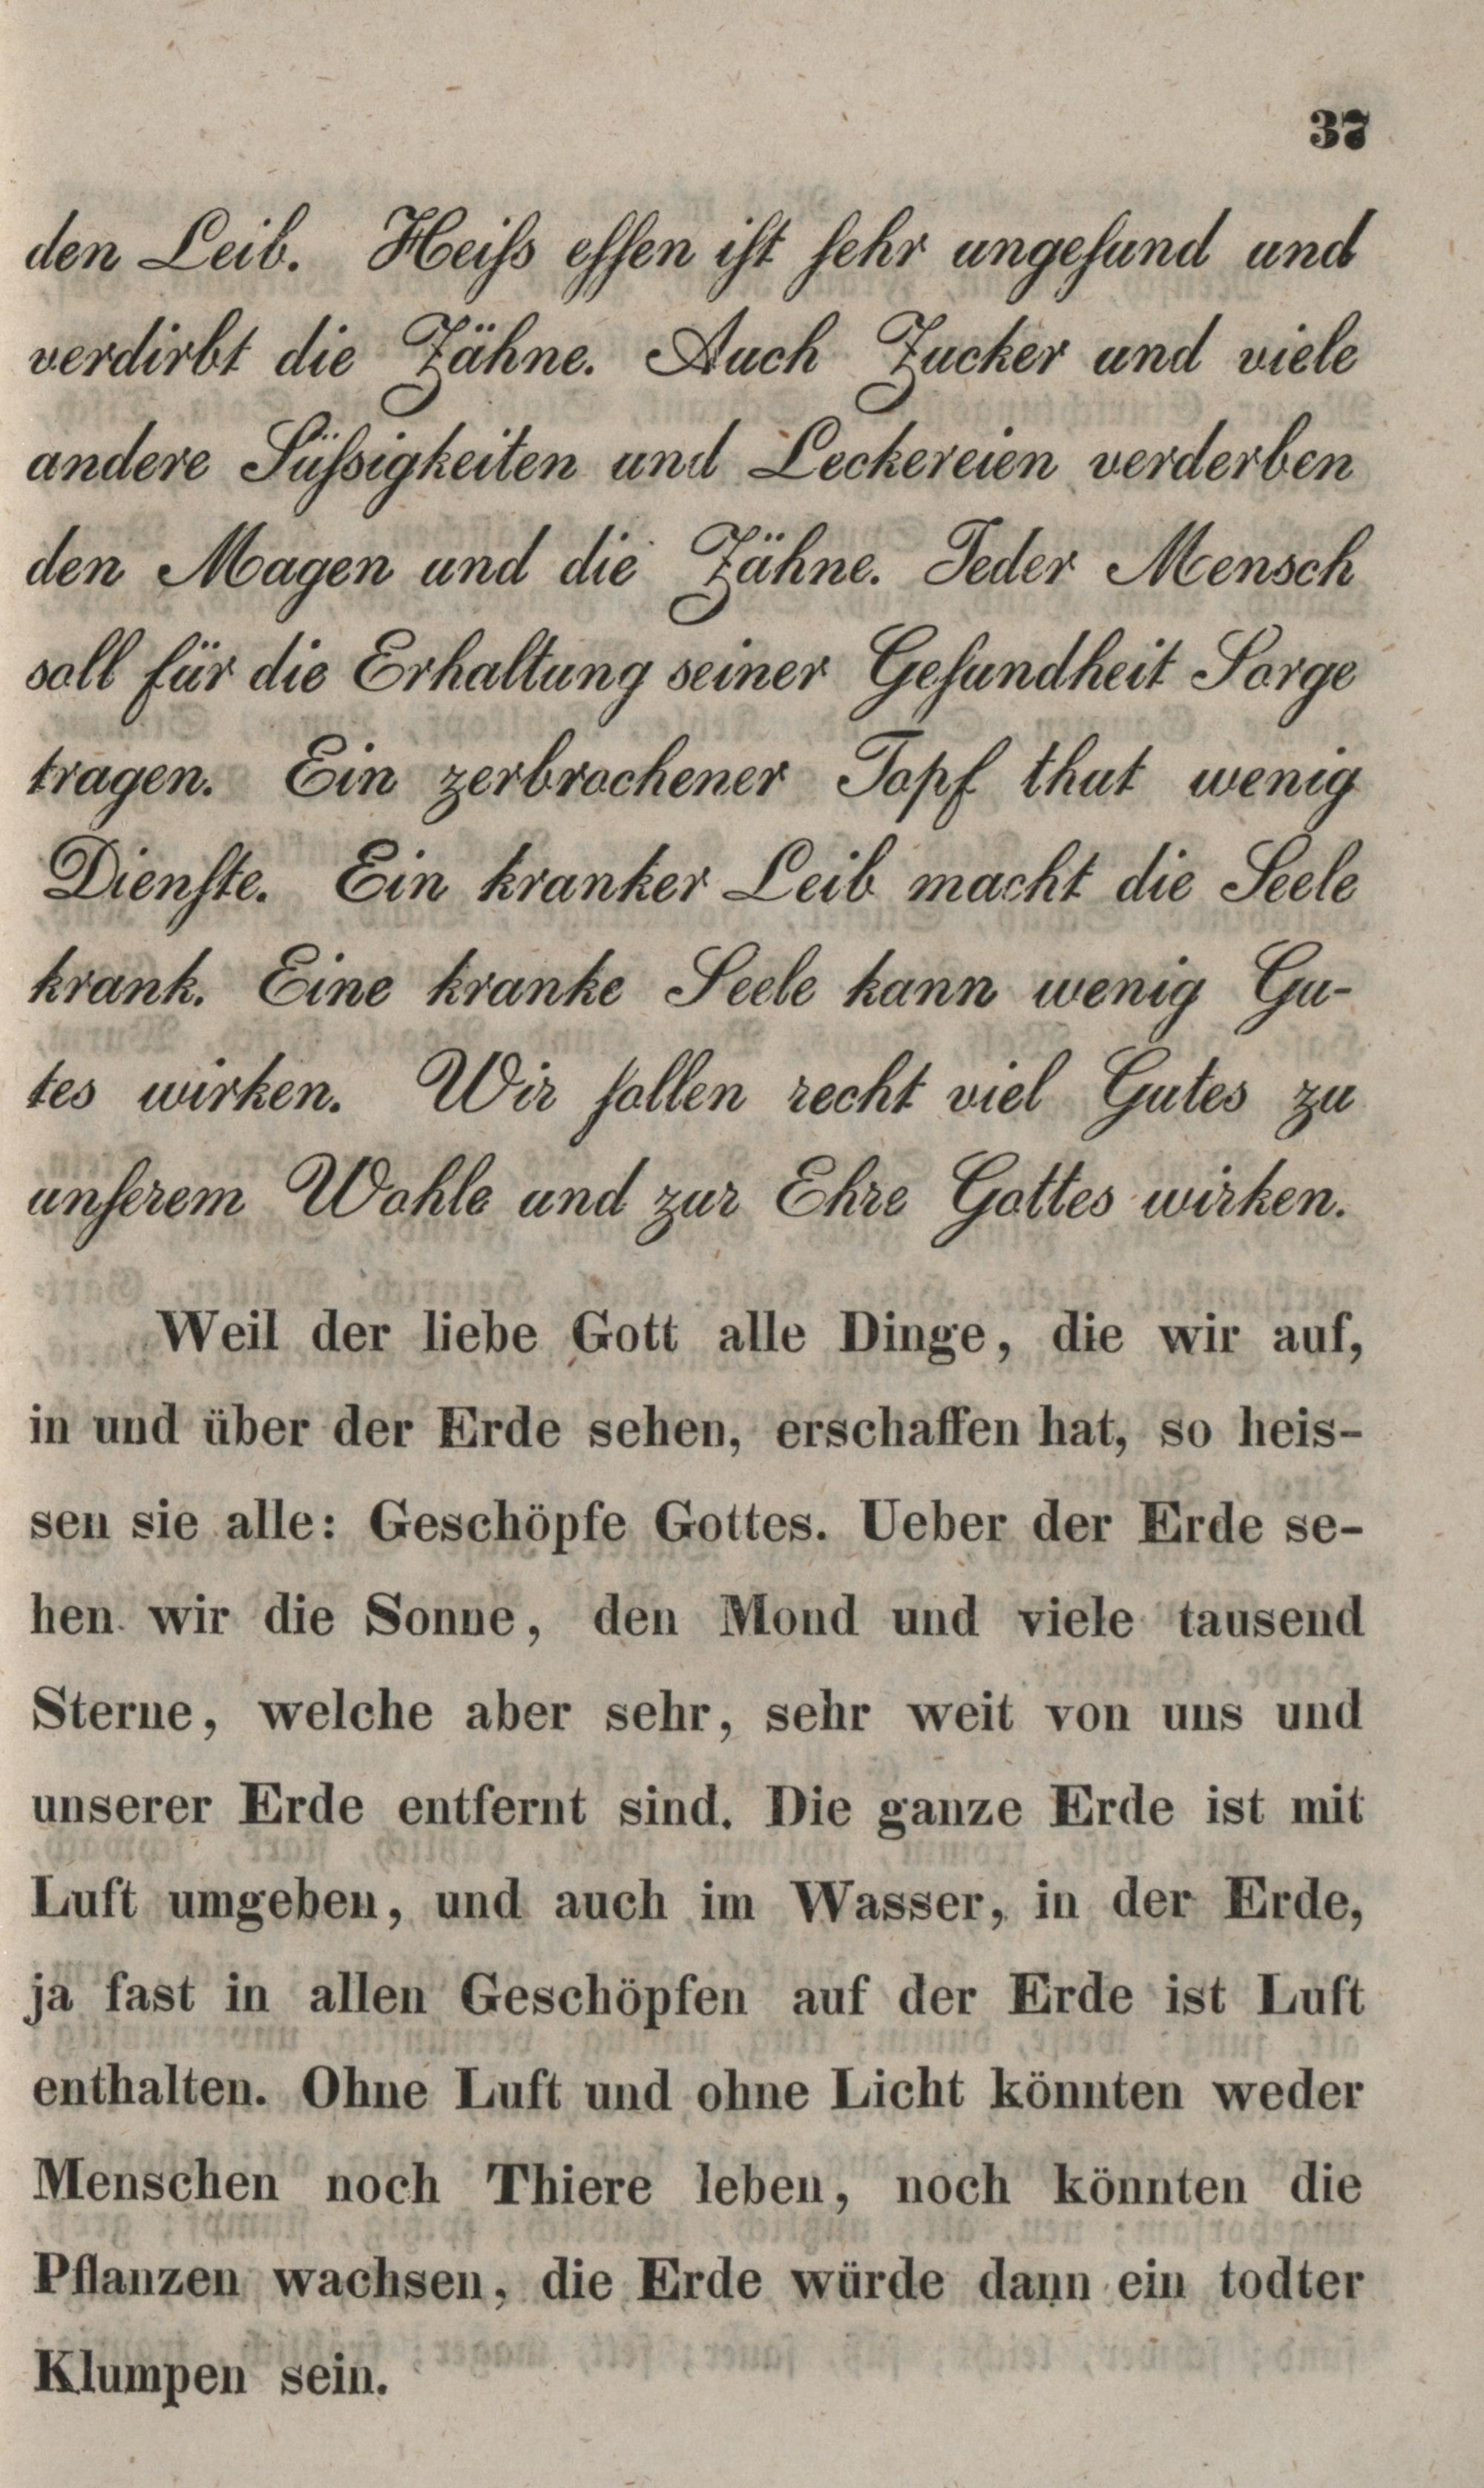 37
den Leib. Heiſs eſſen iſt ſehr ungeſund und
verdirbt die Zähne. Auch Zucker und viele
andere Süſsigkeiten und Leckereien verderben
den Magen und die Zähne. Jeder Mensch
soll für die Erhaltung seiner Geſundheit Sorge
tragen. Ein zerbrochener Topf thut wenig
Dienſte. Ein kranker Leib macht die Seele
krank. Eine kranke Seele kann wenig Gu-
tes wirken. Wir ſollen recht viel Gutes zu
unſerem Wohle und zur Ehre Gottes wirken.
Weil der liebe Gott alle Dinge, die wir auf,
in und über der Erde sehen, erschaffen hat, so heis-
sen sie alle: Geschöpfe Gottes. Ueber der Erde se-
hen wir die Sonne, den Mond und viele tausend
Sterne, welche aber sehr, sehr weit von uns und
unserer Erde entfernt sind. Die ganze Erde ist mit
Luft umgeben, und auch im Wasser, in der Erde,
ja fast in allen Geschöpfen auf der Erde ist Luft
enthalten. Ohne Luft und ohne Licht könnten weder
Menschen noch Thiere leben, noch könnten die
Pflanzen wachsen, die Erde würde dann ein todter
Klumpen sein.